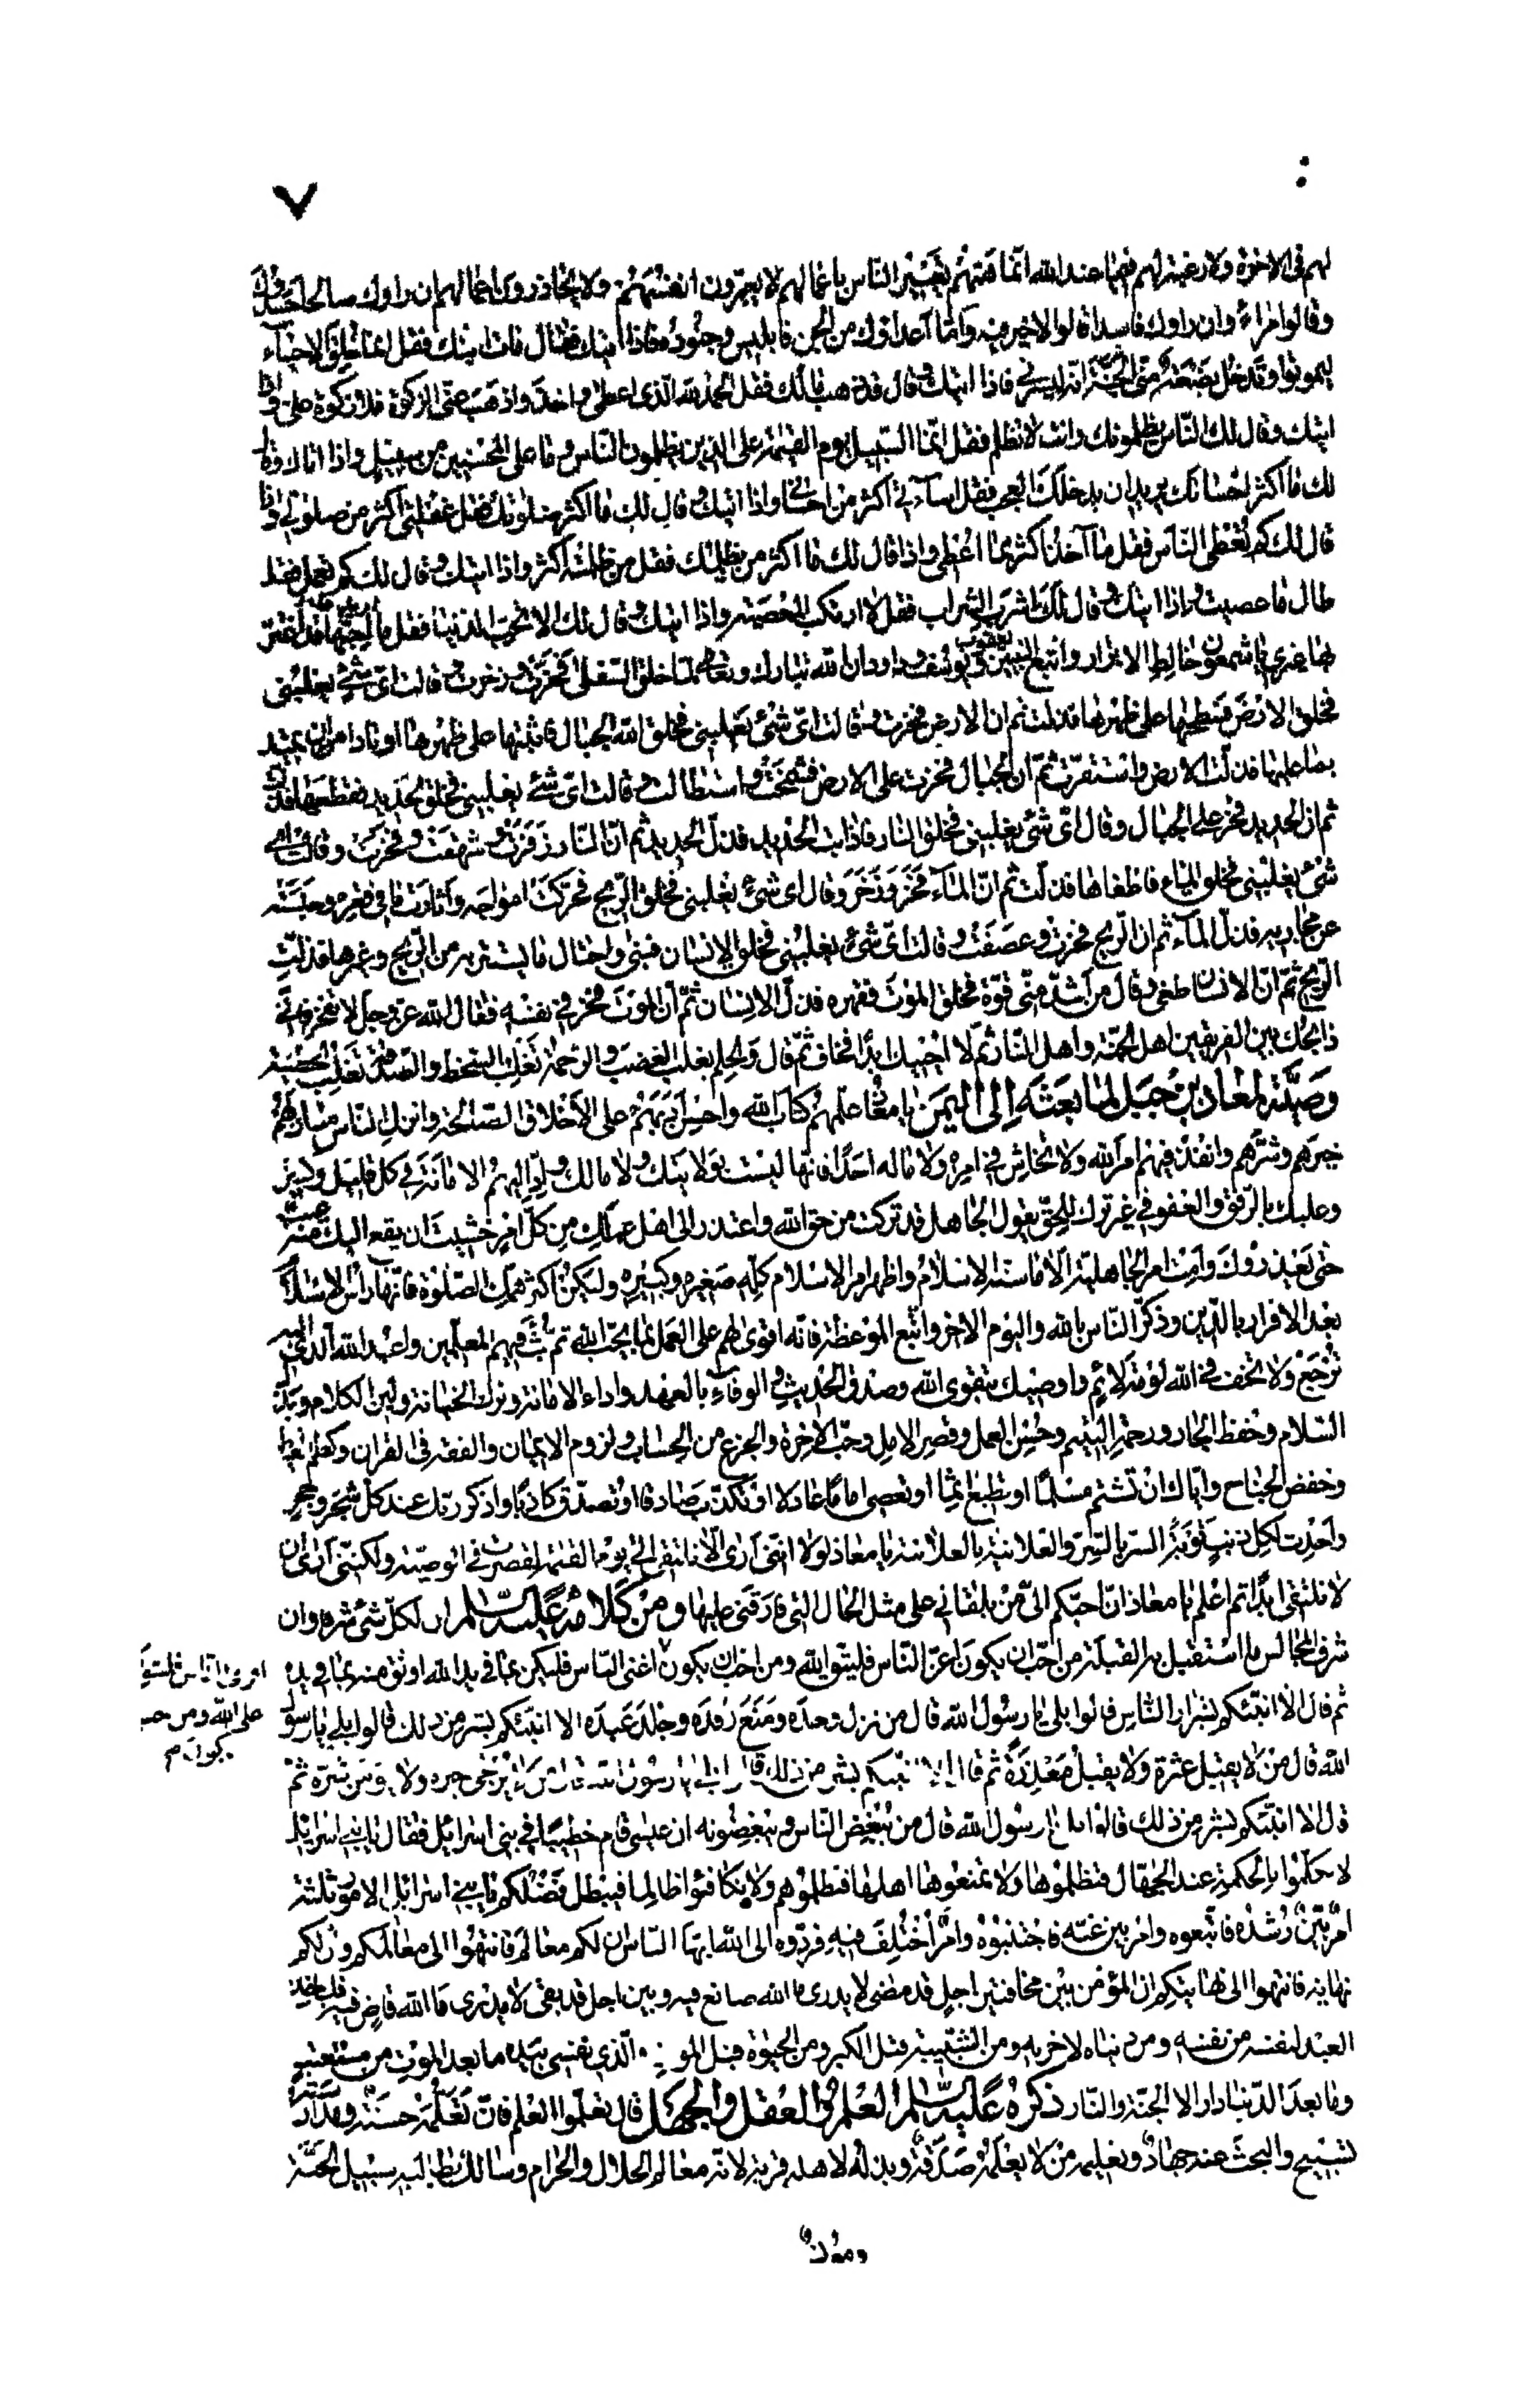 ٧
لهم فی الاخرة ولا رغبة لهم فیما عند الله انما همتهم تعییر الناس باعمالهم لا یعیرون انفسهم ولا یحاذرون اعمالهم ان راوك صالحا حسدوك
وقالوا مراء وان راوك فاسدا قالوا لا خیر فیه واما اعداؤك من الجن فابلیس وجنوده فاذا اتیك فقال مات ابنك فقل انما خلق الاحیاء
لیموتوا وتدخل بضعة منی الجنة انه لیسرنی فاذا اتیك وقال قد ذهب مالك فقل الحمد لله الذی اعطی واخذ واذهب عنی الزكوة فلا زكوة علی واذا
اتیك وقال لك الناس یظلمونك وانت لا تظلم فقل انما السبیل یوم القیمة علی الذین یظلمون الناس وما علی المحسنین من سبیل واذا اتاك وقال
لك ما اكثر احسانك یرید ان یدخلك العجب فقل اسائتی اكثر من احسانی واذا اتیك وقال لك ما اكثر صلوتك فقل غفلتی اكثر من صلوتی واذا
قال لك كم تعطی الناس فقل ما آخذ اكثر مما اعطی واذا قال لك ما اكثر من یظلمك فقل من ظلمته اكثر واذا اتیك وقال لك كم تعمل فقل
طال ما عصیت واذا اتیك وقال لك اشرب الشراب فقل لا ارتكب المعصیة واذا اتیك وقال لك الا تحب الدنیا فقل ما احبها وقد اغتر
بها غیری یا شمعون خالط الابرار واتبع النبیین یعقوب ویوسف وداود ان الله تبارك وتعالی لما خلق السفلی فخرت وزخرت وقالت ای شیء یغلبنی
فخلق الارض فسطحها علی ظهرها فذلت ثم ان الارض فخرت وقالت ای شیء یغلبنی فخلق الله الجبال فاثبتها علی ظهرها اوتادا من ان تمید
بما علیها فذلت الارض واستقرت ثم ان الجبال فخرت علی الارض فشمخت واستطالت وقالت ای شیء یغلبنی فخلق الحدید فقطعها فذلت
ثم ان الحدید فخر علی الجبال وقال ای شیء یغلبنی فخلق النار فاذابت الحدید فذل الحدید ثم ان النار زفرت وشهقت وفخرت وقالت ای
شیء یغلبنی فخلق الماء فاطفاها فذلت ثم ان الماء فخر وزخر وقال ای شیء یغلبنی فخلق الریح فحركت امواجه واثارت ما فی قعره وحبسته
عن مجاریه فذل الماء ثم ان الریح فخرت وعصفت وقالت ای شیء یغلبنی فخلق الانسان فبنی واحتال ما یستتر به من الریح وغیرها فذلت
الریح ثم ان الانسان طغی وقال من اشد منی قوة فخلق الموت فقهره فذل الانسان ثم ان الموت فخر فی نفسه فقال الله عز وجل لا تفخر فانی
ذابحك بین الفریقین اهل الجنة واهل النار ثم لا احییك ابدا فخاف ثم قال والحلم یغلب الغضب والرحمة تغلب السخط والصدقة تغلب الخطیئة
وصیته لمعاذ بن جبل لما بعثه الی الیمن یا معاذ علمهم كتاب الله واحسن ادبهم علی الاخلاق الصالحة وانزل الناس منازلهم
خیرهم وشرهم وانفذ فیهم امر الله ولا تحاش فی امره ولا ماله احدا فانها لیست بولایتك ولا مالك واد الیهم الامانة فی كل قلیل وكثیر
وعلیك بالرفق والعفو فی غیر ترك للحق یقول الجاهل قد تركت من حق الله واعتذر الی اهل عملك من كل امر خشیت ان یقع الیك منه عیب
حتی یعذروك وامت امر الجاهلیة الا ما سنه الاسلام واظهر امر الاسلام كله صغیره وكبیره ولیكن اكثر همك الصلوة فانها راس الاسلام
بعد الاقرار بالدین وذكر الناس بالله والیوم الاخر واتبع الموعظة فانه اقوی لهم علی العمل بما یحب الله ثم بث فیهم المعلمین واعبد الله الذی الیه
ترجع ولا تخف فی الله لومة لائم واوصیك بتقوی الله وصدق الحدیث والوفاء بالعهد واداء الامانة وترك الخیانة ولین الكلام وبذل
السلام وحفظ الجار ورحمة الیتیم وحسن العمل وقصر الامل وحب الاخرة والجزع من الحساب ولزوم الایمان والفقه فی القران وكظم الغیظ
وخفض الجناح وایاك ان تشتم مسلما او تطیع اثما او تعصی اماما عادلا او تكذب صادقا او تصدق كاذبا واذكر ربك عند كل شجر وحجر
واحدث لكل ذنب توبة السر بالسر والعلانیة بالعلانیة یا معاذ لولا اننی اری الا نلتقی الی یوم القیمة لقصرت فی الوصیة ولكننی اری ان
لا نلتقی ابدا ثم اعلم یا معاذ ان احبكم الی من یلقانی علی مثل الحال التی فارقنی علیها ومن كلامه علیه السلام ان لكل شیء شرفا وان
شرف المجالس ما استقبل به القبلة من احب ان یكون اعز الناس فلیتق الله ومن احب ان یكون اغنی الناس فلیكن بما فی ید الله اوثق منه بما فی یده
اقوی الناس فلیتوكل
علی الله ومن احب
ان یكون
ثم قال الا انبئكم بشرار الناس قالوا بلی یا رسول الله قال من نزل وحده ومنع رفده وجلد عبده الا انبئكم بشر من ذلك قالوا بلی یا رسول
الله قال من لا یقیل عثرة ولا یقبل معذرة ثم قال الا انبئكم بشر من ذلك قالوا بلی یا رسول الله قال من لا یرجی خیره ولا یؤمن شره ثم
قال الا انبئكم بشر من ذلك قالوا بلی یا رسول الله قال من یبغض الناس ویبغضونه ان عیسی قام خطیبا فی بنی اسرائیل فقال یا بنی اسرائیل
لا تكلموا بالحكمة عند الجهال فتظلموها ولا تمنعوها اهلها فتظلموهم ولا تكافئوا ظالما فیبطل فضلكم یا بنی اسرائیل الامور ثلثة
امر بین رشده فاتبعوه وامر بین غیه فاجتنبوه وامر اختلف فیه فردوه الی الله ایها الناس ان لكم معالم فانتهوا الی معالمكم وان لكم
نهایة فانتهوا الی نهایتكم ان المؤمن بین مخافتین اجل قد مضی لا یدری ما الله صانع فیه وبین اجل قد بقی لا یدری ما الله قاض فیه فلیاخذ
العبد لنفسه من نفسه ومن دنیاه لاخرته ومن الشبیبة قبل الكبر ومن الحیوة قبل الموت والذی نفسی بیده ما بعد الموت من مستعتب
وما بعد الدنیا دار الا الجنة والنار ذكره علیه السلام العلم والعقل والجهل قال تعلموا العلم فان تعلمه حسنة ومدارسته
تسبیح والبحث عنه جهاد وتعلیمه من لا یعلمه صدقة وبذله لاهله قربة لانه معالم الحلال والحرام وسالك بطالبه سبیل الجنة